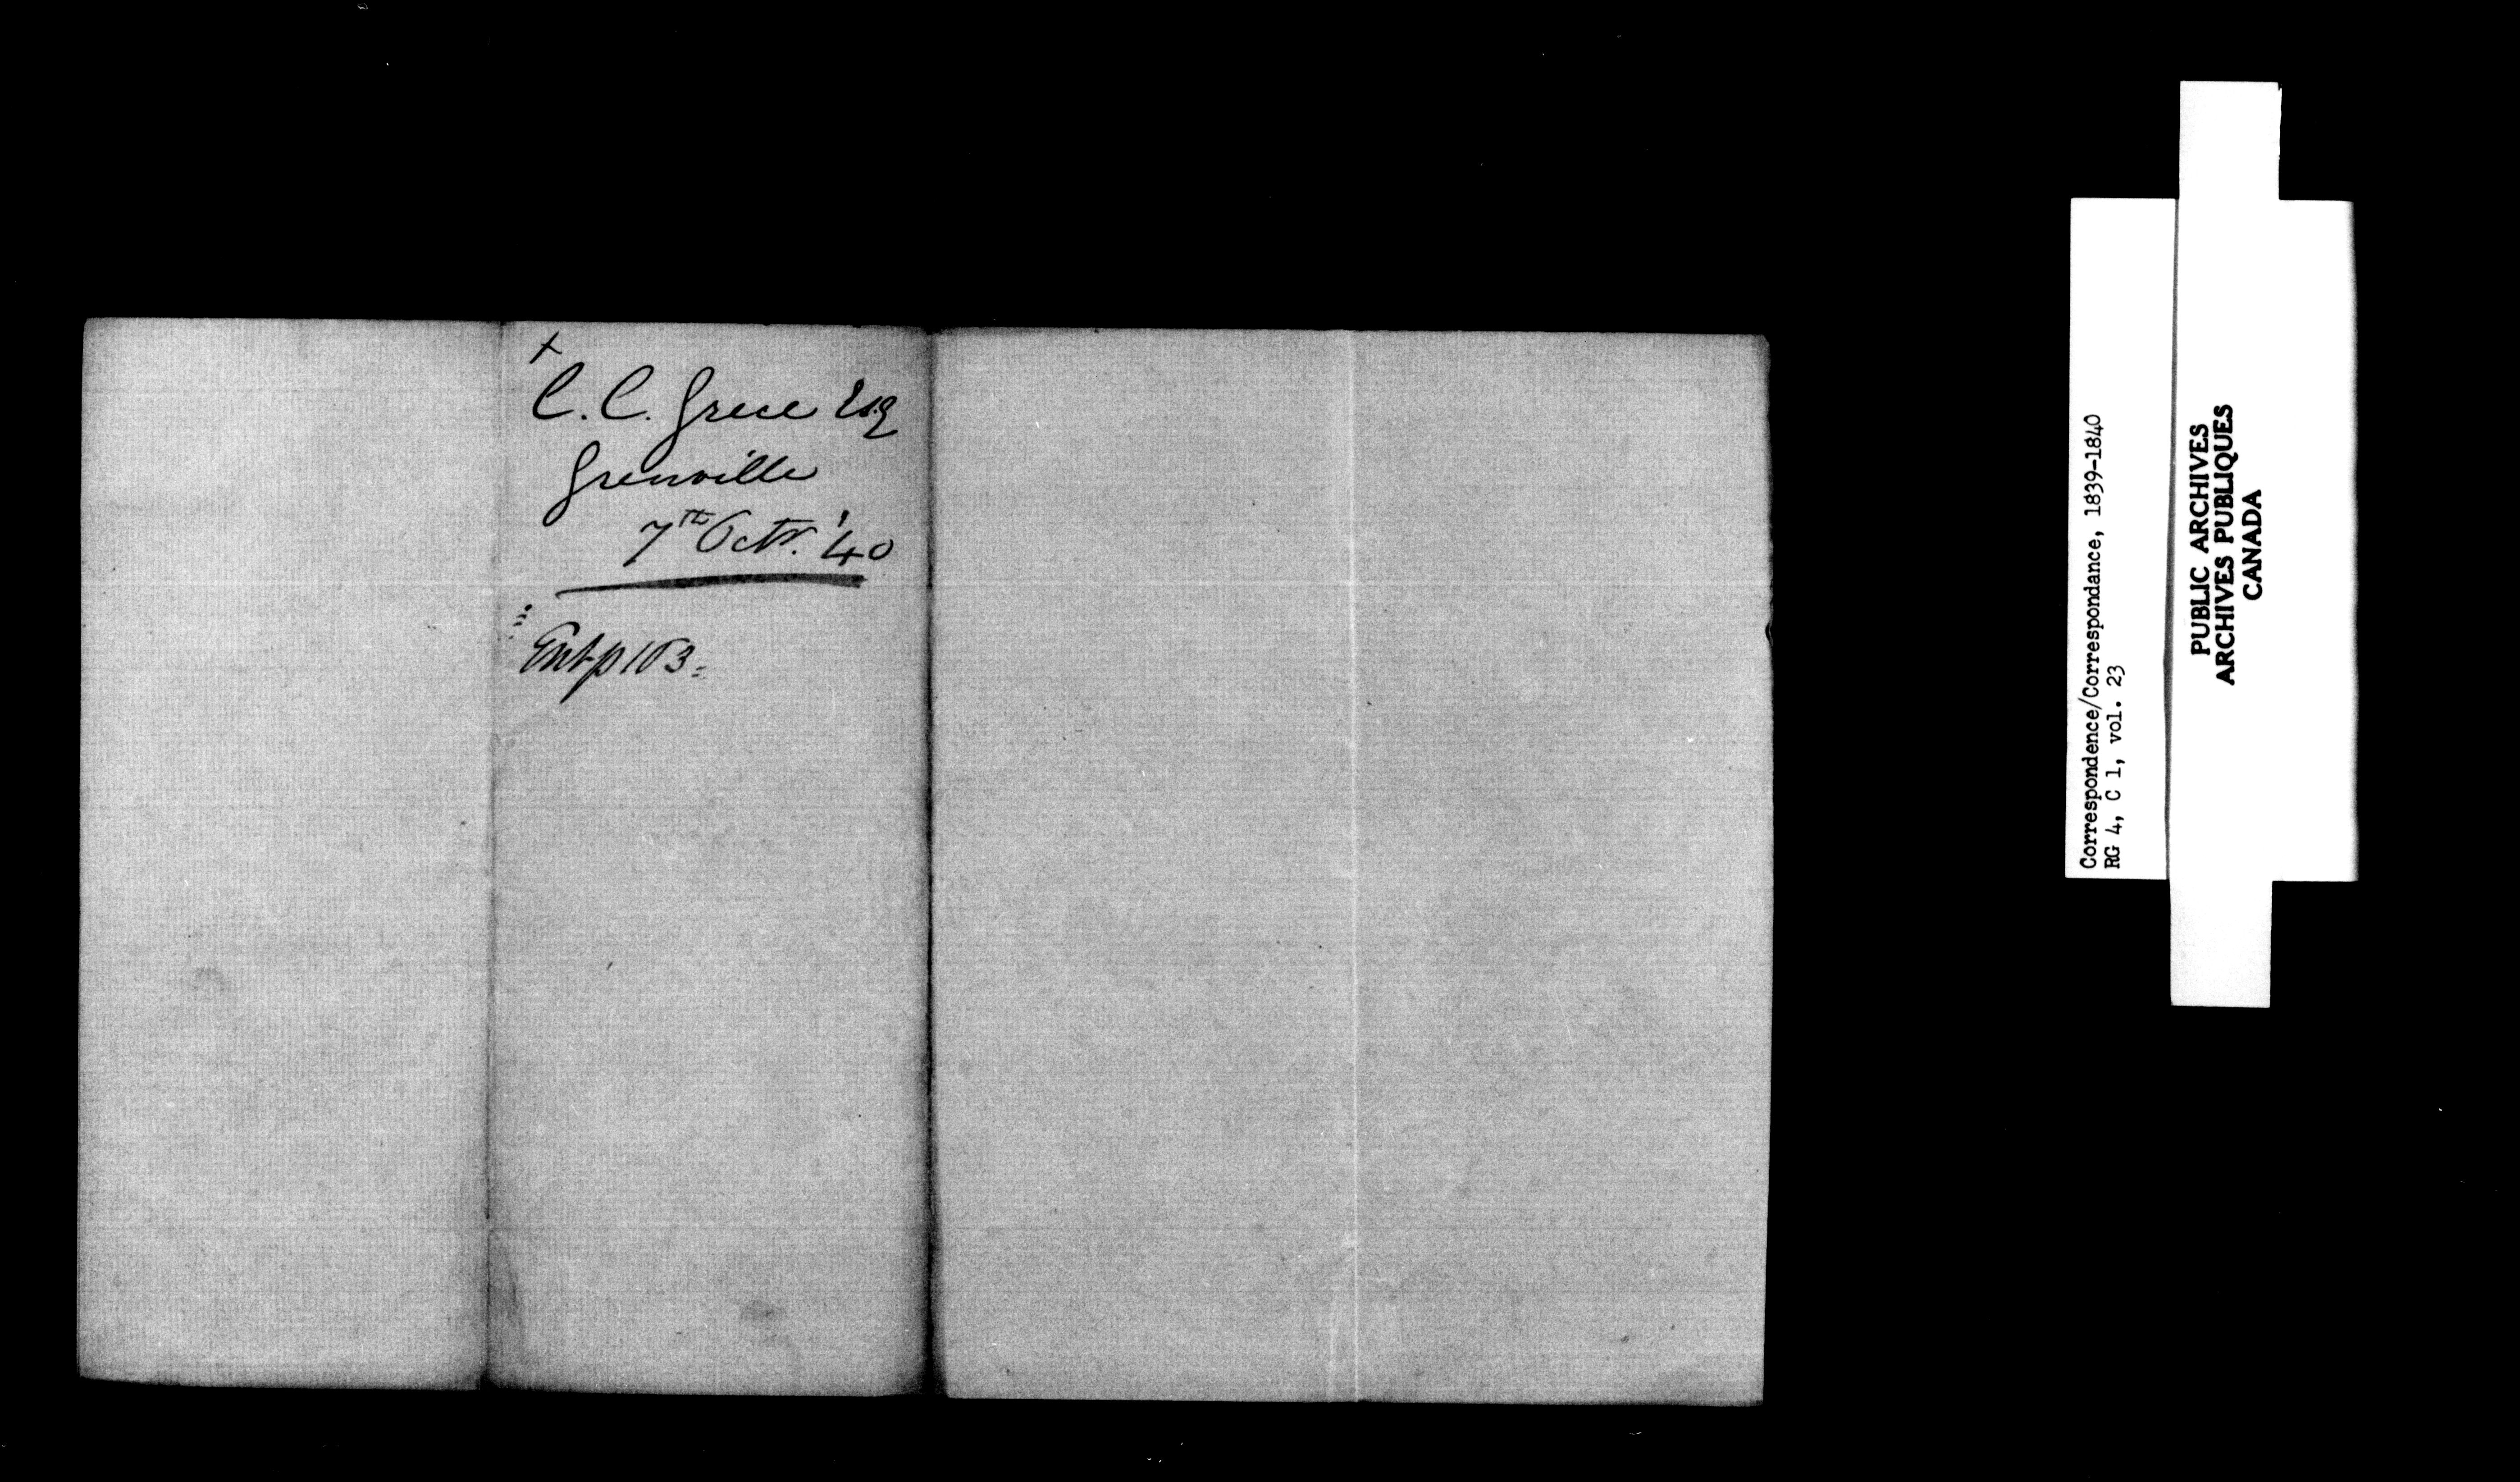 +
C. C. Grece Esq
Grenville
7th Octr. '40
Ent p 103.
Correspondence/Correspondance, 1839-1840
RG 4, C 1, vol. 23
PUBLIC ARCHIVES
ARCHIVES PUBLIQUES
CANADA